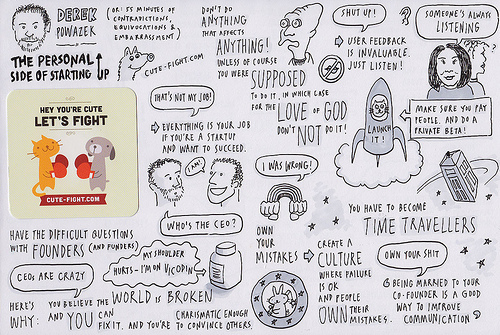 DEREK
POWAZEK
(OR: 55 MINUTES OF
CONTRADICTIONS,
EQUIVOCATIONS &
EMBARRASSMENT)
THE PERSONAL
SIDE OF STARTING UP
CUTE-FIGHT.COM
HEY YOU'RE CUTE
LET'S FIGHT
CUTE-FIGHT.COM
DON'T DO
ANYTHING
THAT AFFECTS
ANYTHING!
UNLESS OF COURSE
YOU WERE SUPPOSED
TO DO IT, IN WHICH CASE
FOR THE LOVE OF GOD
DON'T NOT DO IT!
SHUT UP!
USER FEEDBACK
IS INVALUABLE.
JUST LISTEN!
?
SOMEONE'S ALWAYS
LISTENING
?
THAT'S NOT MY JOB!
EVERYTHING IS YOUR JOB
IF YOU'RE A STARTUP
AND WANT TO SUCCEED.
LAUNCH
IT!
MAKE SURE YOU PAY
PEOPLE. AND DO A
PRIVATE BETA!
I AM!
WHO'S THE CEO?
I WAS WRONG!
OWN
YOUR
MISTAKES
CREATE A
CULTURE
WHERE FAILURE
IS OK
AND PEOPLE
OWN THEIR
MISTAKES.
YOU HAVE TO BECOME
TIME TRAVELLERS
HAVE THE DIFFICULT QUESTIONS
WITH FOUNDERS (AND FUNDERS)
CEOs ARE CRAZY
MY SHOULDER
HURTS - I'M ON VICODIN
HERE'S
WHY:
YOU BELIEVE THE WORLD IS BROKEN
AND YOU CAN
FIX IT. AND YOU'RE
CHARISMATIC ENOUGH
TO CONVINCE OTHERS.
OWN YOUR SHIT
BEING MARRIED TO YOUR
CO-FOUNDER IS A GOOD
WAY TO IMPROVE
COMMUNICATION